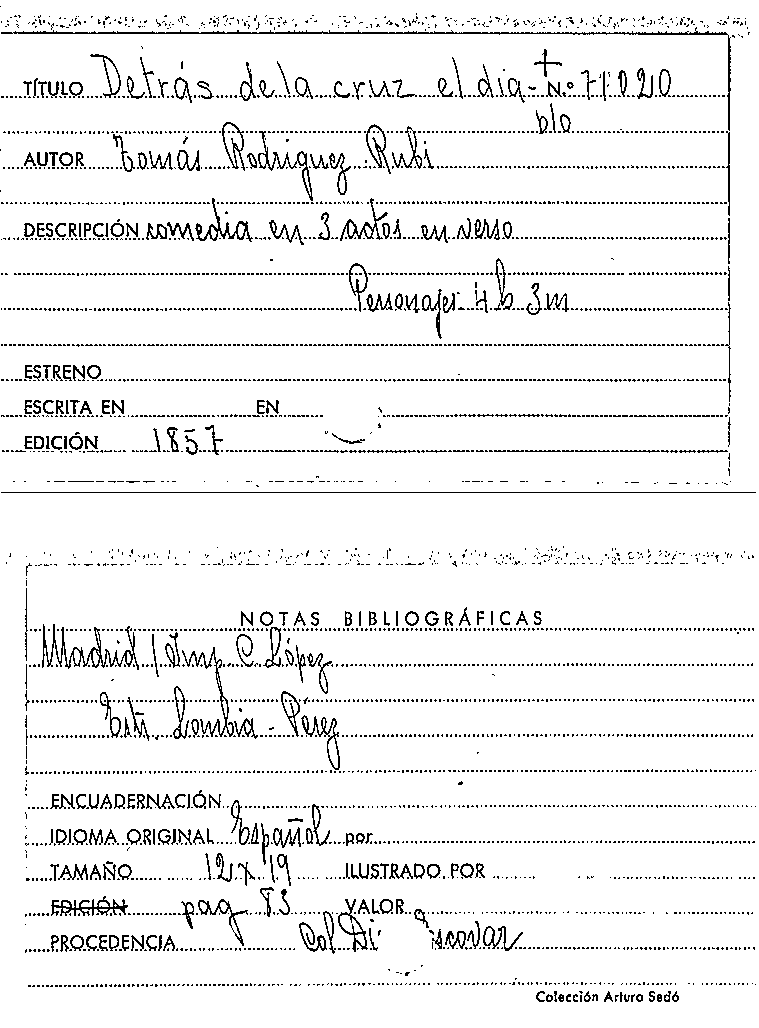 TÍTULO Detrás de la cruz el dia- N.º 71020
AUTOR Tomás Rodriguez Rubi
DESCRIPCIÓN comedia en 3 actos en verso
Personajes 4 h 3 m
ESTRENO
ESCRITA EN EN
EDICIÓN 1857
NOTAS BIBLIOGRÁFICAS
Madrid / Imp. C. López
Estr. Lombia - Pérez
ENCUADERNACIÓN
IDIOMA ORIGINAL Español por
TAMAÑO 12 x 19 ILUSTRADO POR
EDICIÓN pag 83 VALOR
PROCEDENCIA Col Di scovar
Colección Arturo Sedó